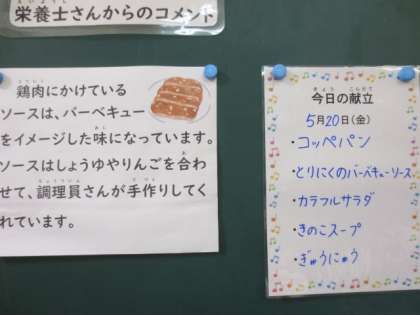 栄養士さんからのコメント
鶏肉にかけている
ソースは、バーベキュー
をイメージした味になっています。
ソースはしょうゆやりんごを合わ
せて、調理員さんが手作りしてく
れています。
今日の献立
5月20日(金)
・コッペパン
・とりにくのバーベキューソース
・カラフルサラダ
・きのこスープ
・ぎゅうにゅう